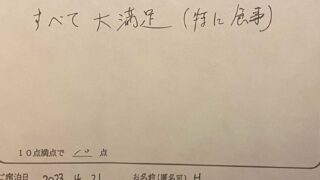 すべて大満足(特に食事)
10点満点で 10 点
ご宿泊日 2023.4.21 お名前(匿名可) H